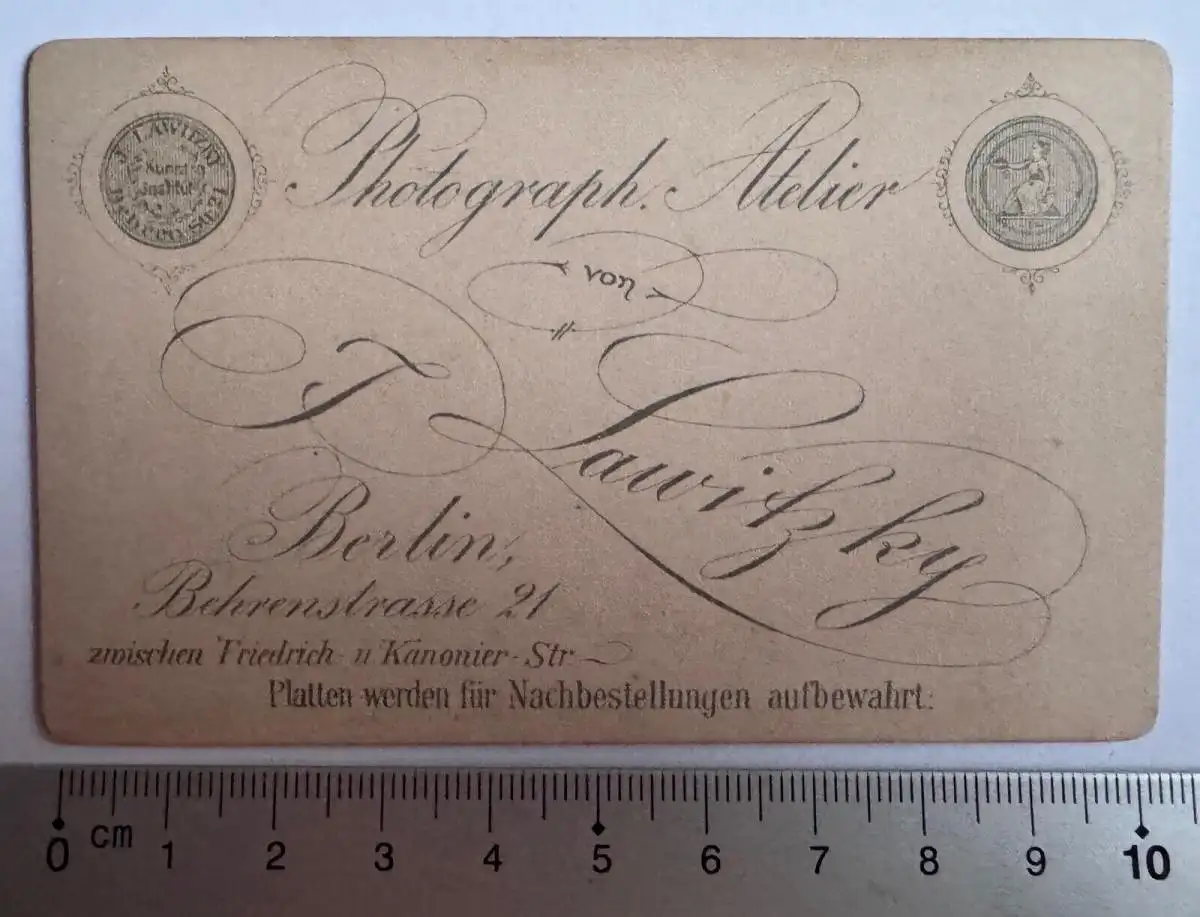 J. LAWITZKY
Kunst
Institut
Behren Str 21
Photograph. Atelier
von
J. Lawitzky
Berlin,
Behrenstrasse 21
zwischen Friedrich- u Kanonier-Str
Platten werden für Nachbestellungen aufbewahrt.
cm
0 1 2 3 4 5 6 7 8 9 10